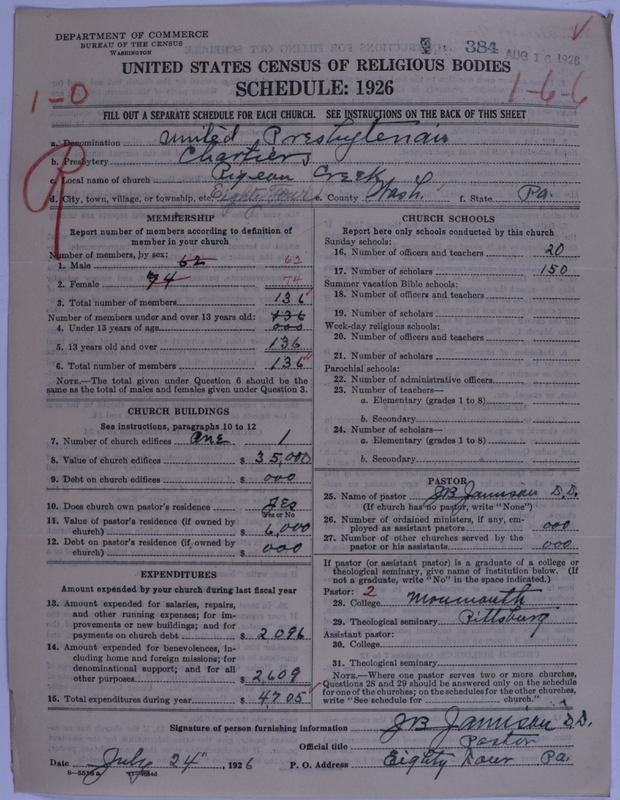 DEPARTMENT OF COMMERCE
BUREAU OF THE CENSUS
WASHINGTON
384
AUG 16 1926
UNITED STATES CENSUS OF RELIGIOUS BODIES
SCHEDULE: 1926
1-0
1-6-6
FILL OUT A SEPARATE SCHEDULE FOR EACH CHURCH. SEE INSTRUCTIONS ON THE BACK OF THIS SHEET
a. Denomination United Presbyterian
b. Presbytery Chartiers
c. Local name of church Pigeon Creek
d. City, town, village, or township, etc. Eighty Four e. County Wash. f. State Pa.
R
MEMBERSHIP
Report number of members according to definition of
member in your church
Number of members, by sex:
1. Male 62 62
2. Female 74 74
3. Total number of members 136
Number of members under and over 13 years old: 136
4. Under 13 years of age 000
5. 13 years old and over 136
6. Total number of members 136
NOTE.—The total given under Question 6 should be
same as the total of males and females given under Question 3.
CHURCH BUILDINGS
See instructions, paragraphs 10 to 12
7. Number of church edifices one 1
8. Value of church edifices $ 35,000
9. Debt on church edifices $ 000
10. Does church own pastor's residence yes
Yes or No
11. Value of pastor's residence (if owned by
church) $ 6,000
12. Debt on pastor's residence (if owned by
church) $ 000
EXPENDITURES
Amount expended by your church during last fiscal year
13. Amount expended for salaries, repairs,
and other running expenses; for im-
provements or new buildings; and for
payments on church debt $ 2096
14. Amount expended for benevolences, in-
cluding home and foreign missions; for
denominational support; and for all
other purposes $ 2609
15. Total expenditures during year $ 4705
CHURCH SCHOOLS
Report here only schools conducted by this church
Sunday schools:
16. Number of officers and teachers 20
17. Number of scholars 150
Summer vacation Bible schools:
18. Number of officers and teachers
19. Number of scholars
Week-day religious schools:
20. Number of officers and teachers
21. Number of scholars
Parochial schools:
22. Number of administrative officers
23. Number of teachers—
a. Elementary (grades 1 to 8)
b. Secondary
24. Number of scholars—
a. Elementary (grades 1 to 8)
b. Secondary
PASTOR
25. Name of pastor JB Jamison D.D.
(If church has no pastor, write "None")
26. Number of ordained ministers, if any, em-
ployed as assistant pastors 000
27. Number of other churches served by the
pastor or his assistants 000
If pastor (or assistant pastor) is a graduate of a college or
theological seminary, give name of institution below. (If
not a graduate, write "No" in the space indicated.)
Pastor: 2
28. College Monmouth
29. Theological seminary Pittsburg
Assistant pastor:
30. College
31. Theological seminary
NOTE.—Where one pastor serves two or more churches,
Questions 28 and 29 should be answered only on the schedule
for one of the churches; on the schedules for the other churches,
write "See schedule for church."
Signature of person furnishing information JB Jamison D.D.
Official title Pastor
Date July 24" , 1926 P. O. Address Eighty Four Pa.